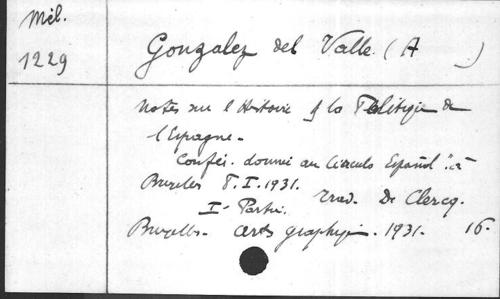 Mél.
1229
Gonzalez del Valle (A )
Notes sur l'Histoire & la Politique de
l'Espagne -
Confér. donnée au Circulo Español "à
Bruxelles 8.I.1931.
Trad. De Clercq.
Iº Partie.
Bruxelles - Arts graphiques. 1931. 16.